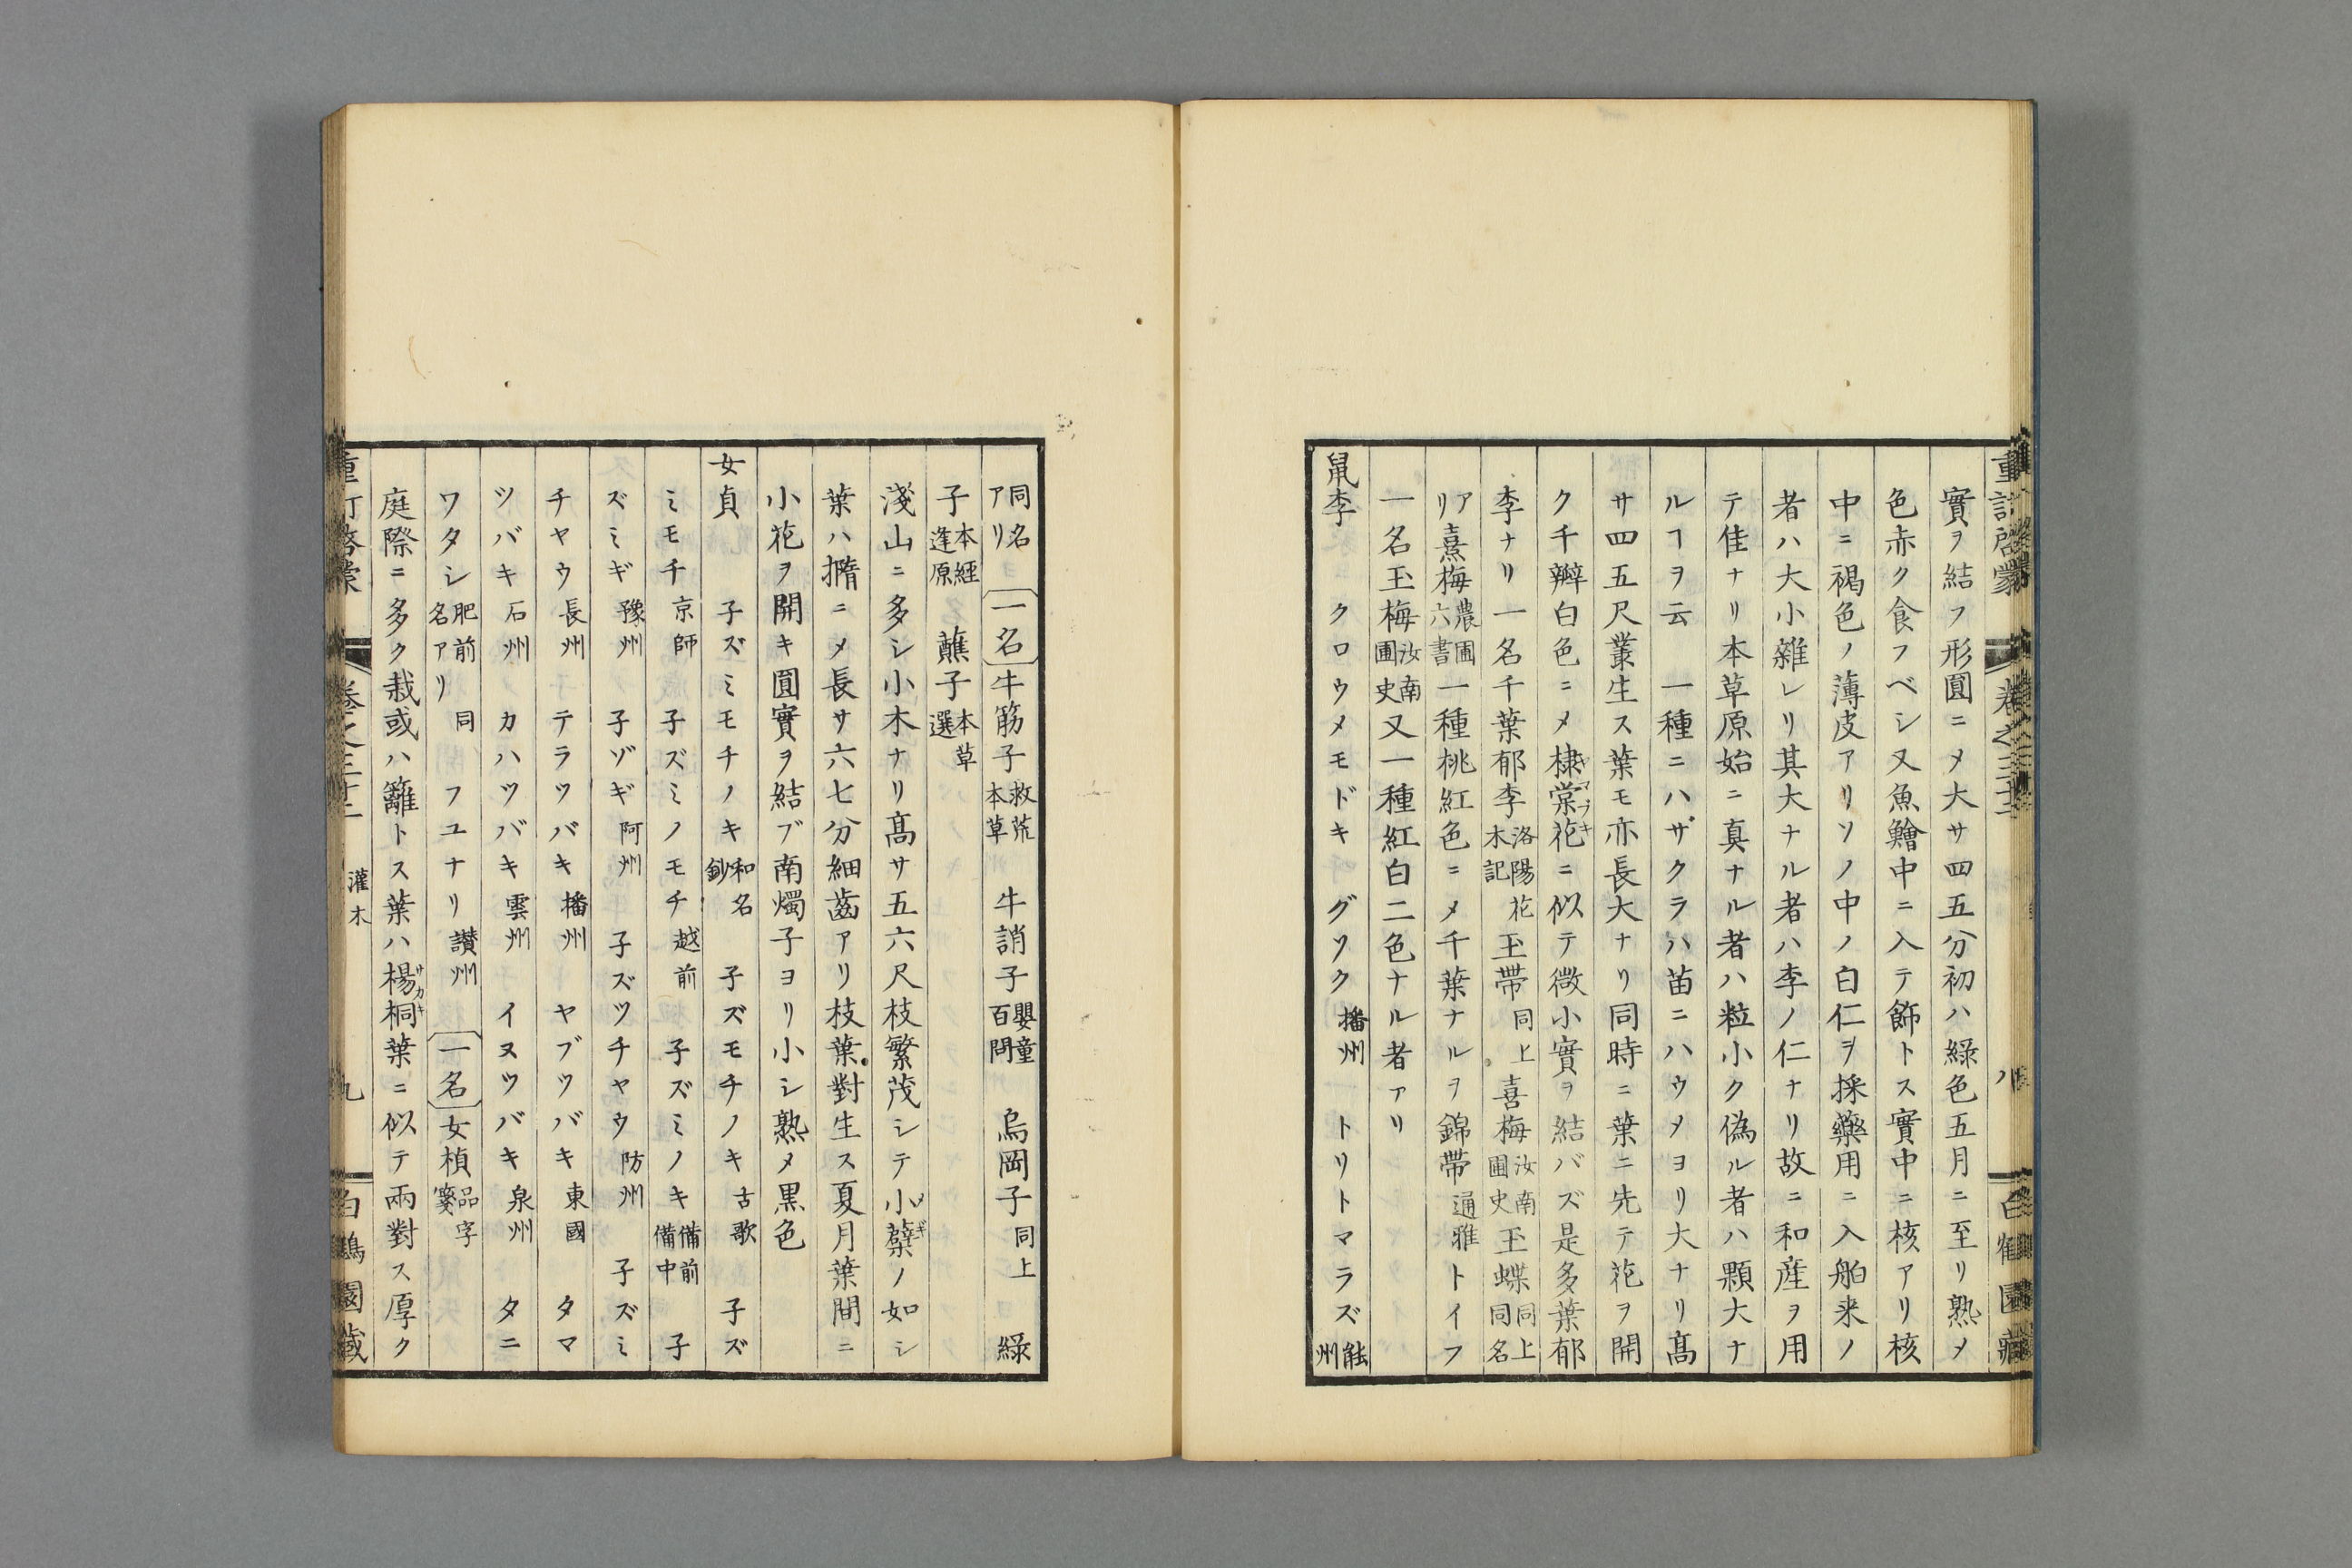 實ヲ結フ形圓ニメ大サ四五分初ハ綠色五月ニ至リ熟メ
色赤ク食フベシ又魚鱠中ニ入テ飾トス實中ニ核アリ核
中ニ褐色ノ薄皮アリソノ中ノ白仁ヲ採藥用ニ入舶来ノ
者ハ大小雜レリ其大ナル者ハ李ノ仁ナリ故ニ和産ヲ用
テ佳ナリ本草原始ニ真ナル者ハ粒小ク偽ル者ハ顆大ナ
ルヿヲ云 一種ニハザクラハ苗ニハウメヨリ大ナリ髙
サ四五尺叢生ス葉モ亦長大ナリ同時ニ葉ニ先テ花ヲ開
ク千辧白色ニメ棣棠花ヤマブキニ似テ微小實ヲ結バズ是多葉郁
李ナリ一名千葉郁李洛陽花木記 玉帶同上 喜梅汝南圃史 玉蝶同上同名
アリ 熹梅農圃六書 一種桃紅色ニメ千葉ナルヲ錦帶通雅トイフ
一名玉梅汝南圃史 又一種紅白二色ナル者アリ
鼠李 クロウメモドキ グソク播州 トリトマラズ能州
同名アリ 一名 牛筋子救荒本草 牛誚子嬰童百問 烏岡子同上 綠
子本經逢原 蘸子本草選
淺山ニ多シ小木ナリ髙サ五六尺枝繁茂シテ小蘗メギノ如シ
葉ハ撱ニメ長サ六七分細齒アリ枝葉對生ス夏月葉間ニ
小花ヲ開キ圓實ヲ結ブ南燭子ヨリ小シ熟メ黒色
女貞 子ズミモチノキ和名鈔 子ズモチノキ古歌 子ズ
ミモチ京師 子ズミノモチ越前 子ズミノキ備前備中 子
ズミギ豫州 子ヅギ阿州 子ズツチャウ防州 子ズミ
チヤウ長州 テラツバキ播州 ヤブツバキ東國 タマ
ツバキ石州 カハツバキ雲州 イヌツバキ泉州 タニ
ワタシ肥前同名アリ フユナリ讃州 一名 女楨品字箋
庭際ニ多ク栽或ハ籬トス葉ハ楊桐サカキ葉ニ似テ兩對ス厚ク
灌木
九